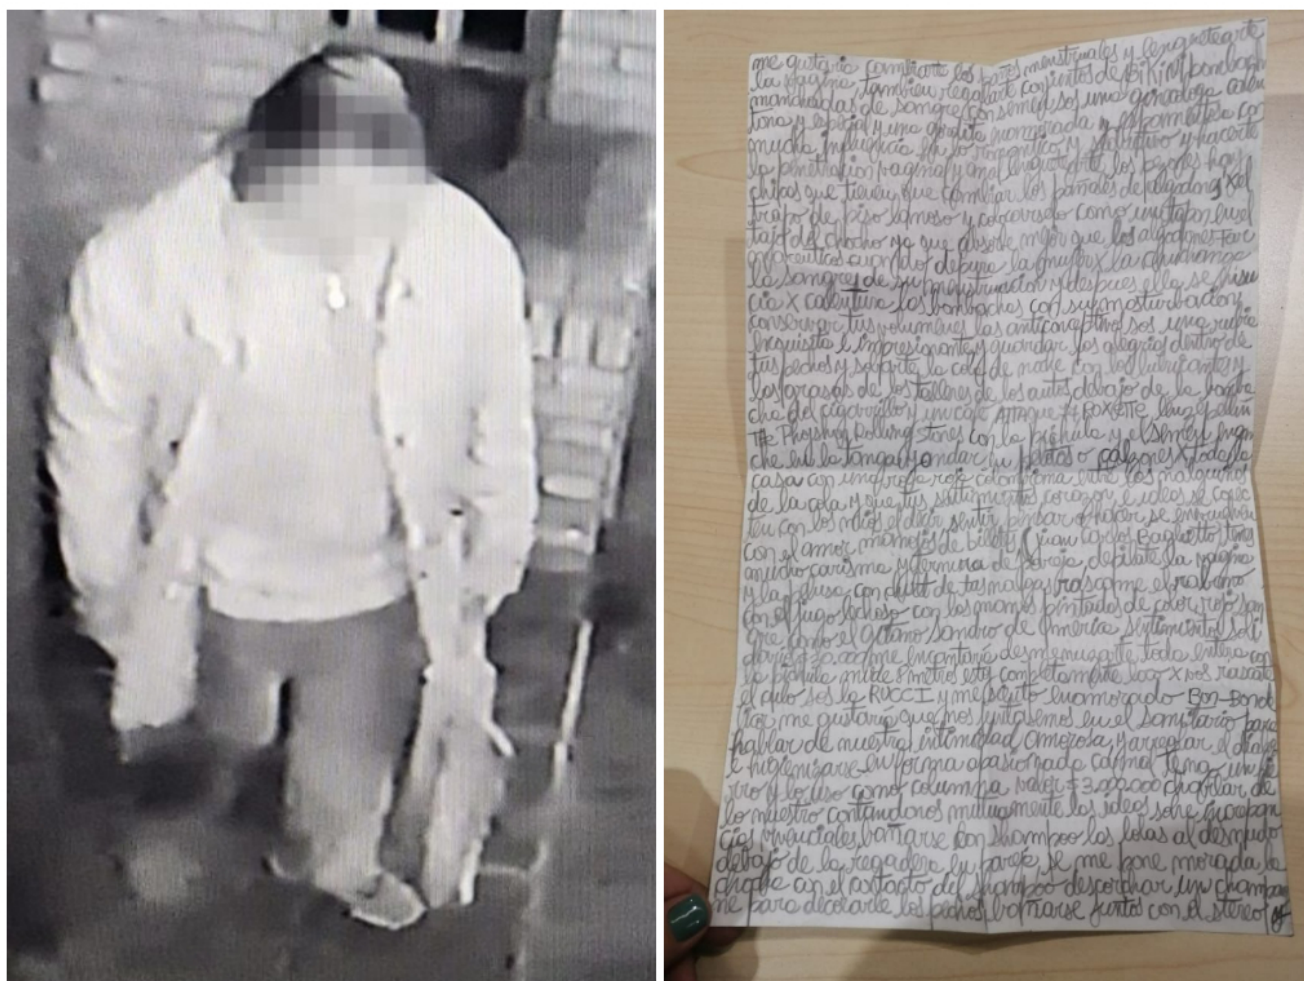 me gustaria cambiarte los paños menstruales y lenguetearte
la vagina, tambien regalarte conjuntos de BiKiNi bombach
manchadas de sangre con semen sos una
y especial y una gordita y
mucha influencia en lo romantico y y hacerte
la penetracion vaginal y anal lenguetearte los pezones hay
chicas que tienen que cambiar los pañales de algodong x el
trapo de piso lanoso y colocarselo como un tapon en el
tajo del chocho ya que absorbe mejor que los algodones far
cuando depura la mujer x la
la sangre de su menstruacion y despues ella se
cia x calentura las bombachas con su masturbacion
conservar tus volumenes los anticonceptivos sos una rubia
exquisita e impresionante y guardar las alegrias dentro de
tus pechos y soparte la cola de noche con los lubricantes y
las grasas de los talleres de los autos debajo de la bomba
cha del cigarrillo y un cafe ATAque 77 ROXETTE
The Rolling Stones con la pichula y el semen
che en la tanga y andar en pelotas o calzones x toda la
casa con una roja colombiana entre los
de la cola y que tus sentimientos corazon e ideas se conec
ten con los mios el decir sentir pensar o hacer se
con el amor manojos de billetes (juan carlos Baglietto) tengo
mucho carisma y ternura de pareja, depilate la vagina
y la pelusa con de tus nalgas rascame el rabano
con el jugo lechoso con las manos pintadas de color rojo san
gre como el gitano sandro de america, sentimientos soli
darios me encantaria desmenuzarte toda entera con
la pichula mide 8 metros estoy completamente loco x vos
el culo sos la RUCCI y me siento enamorado Bon-Bond
me gustaria que nos juntasemos en el sanitario para
hablar de nuestra intimidad amorosa, y arreglar el
e higienizarse en forma apasionada carnal Tengo un
rro y lo uso como columpia valor $3.000.000 charlar de
lo nuestro contandonos mutuamente las ideas sobre
cias vivenciales bañarse con shampoo las lolas al desnudo
debajo de la regadera en pareja, se me pone morada la
con el contacto del shampoo descorchar un champag
ne para decorarte los pechos bañarse juntos con el stereo